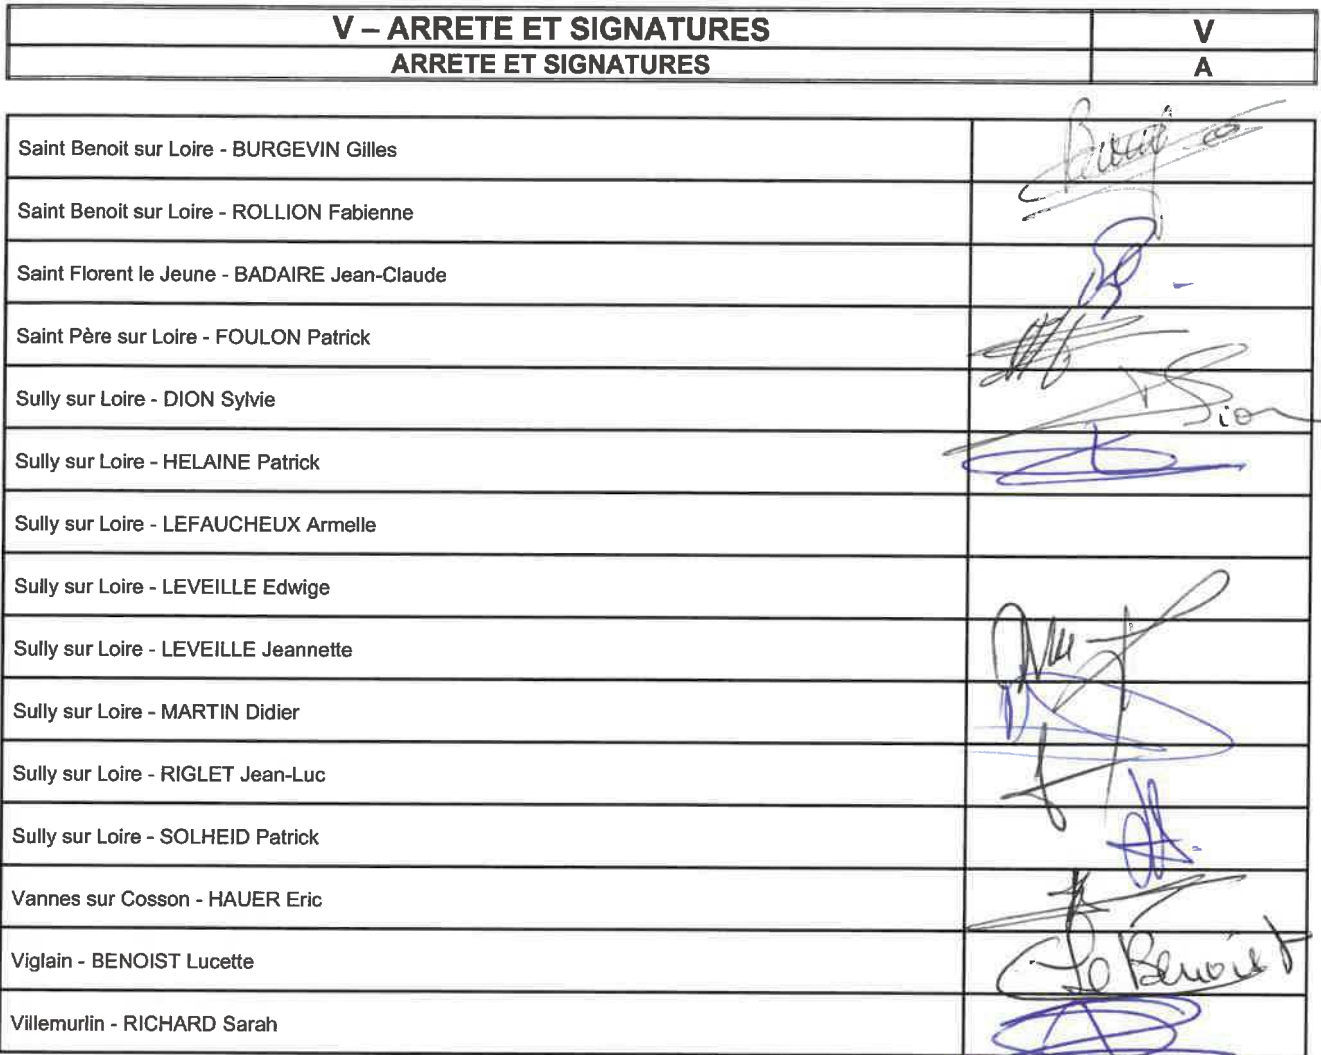 V – ARRETE ET SIGNATURES V
ARRETE ET SIGNATURES A
Saint Benoit sur Loire - BURGEVIN Gilles
Saint Benoit sur Loire - ROLLION Fabienne
Saint Florent le Jeune - BADAIRE Jean-Claude
Saint Père sur Loire - FOULON Patrick
Sully sur Loire - DION Sylvie
Dion
Sully sur Loire - HELAINE Patrick
Sully sur Loire - LEFAUCHEUX Armelle
Sully sur Loire - LEVEILLE Edwige
Sully sur Loire - LEVEILLE Jeannette
Sully sur Loire - MARTIN Didier
Sully sur Loire - RIGLET Jean-Luc
Sully sur Loire - SOLHEID Patrick
Vannes sur Cosson - HAUER Eric
Viglain - BENOIST Lucette
Benoist
Villemurlin - RICHARD Sarah